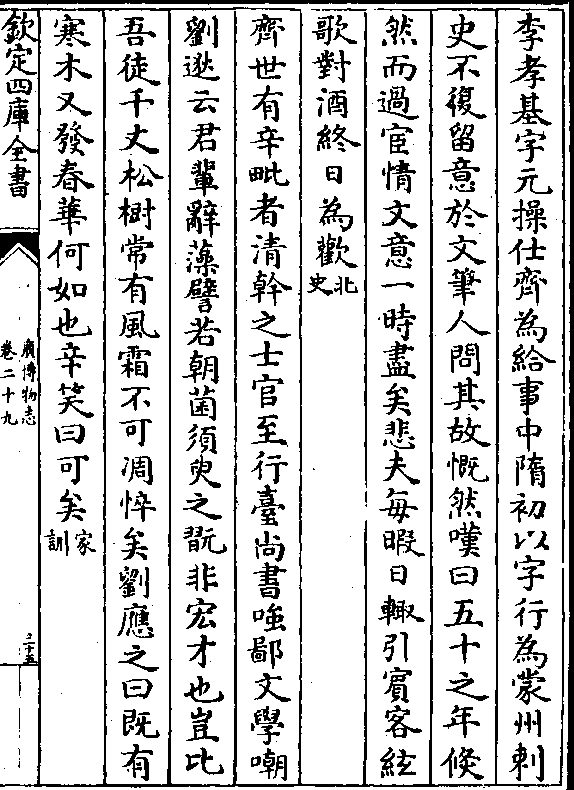 李孝基字元操仕齊為給事中隋初以字行為蒙州刺
史不復留意於文筆人問其故慨然嘆曰五十之年倏
然而過宦情文意一時盡矣悲夫每暇日輙引賓客絃
歌對酒終日為歡北史
齊世有辛毗者清幹之士官至行臺尚書嗤鄙文學嘲
劉逖云君輩辭藻譬若朝菌須臾之翫非宏才也豈比
吾徒千丈松樹常有風霜不可凋悴矣劉應之曰既有
寒木又發春華何如也辛笑曰可矣家訓
欽定四庫全書
廣博物志
卷二十九
三十五